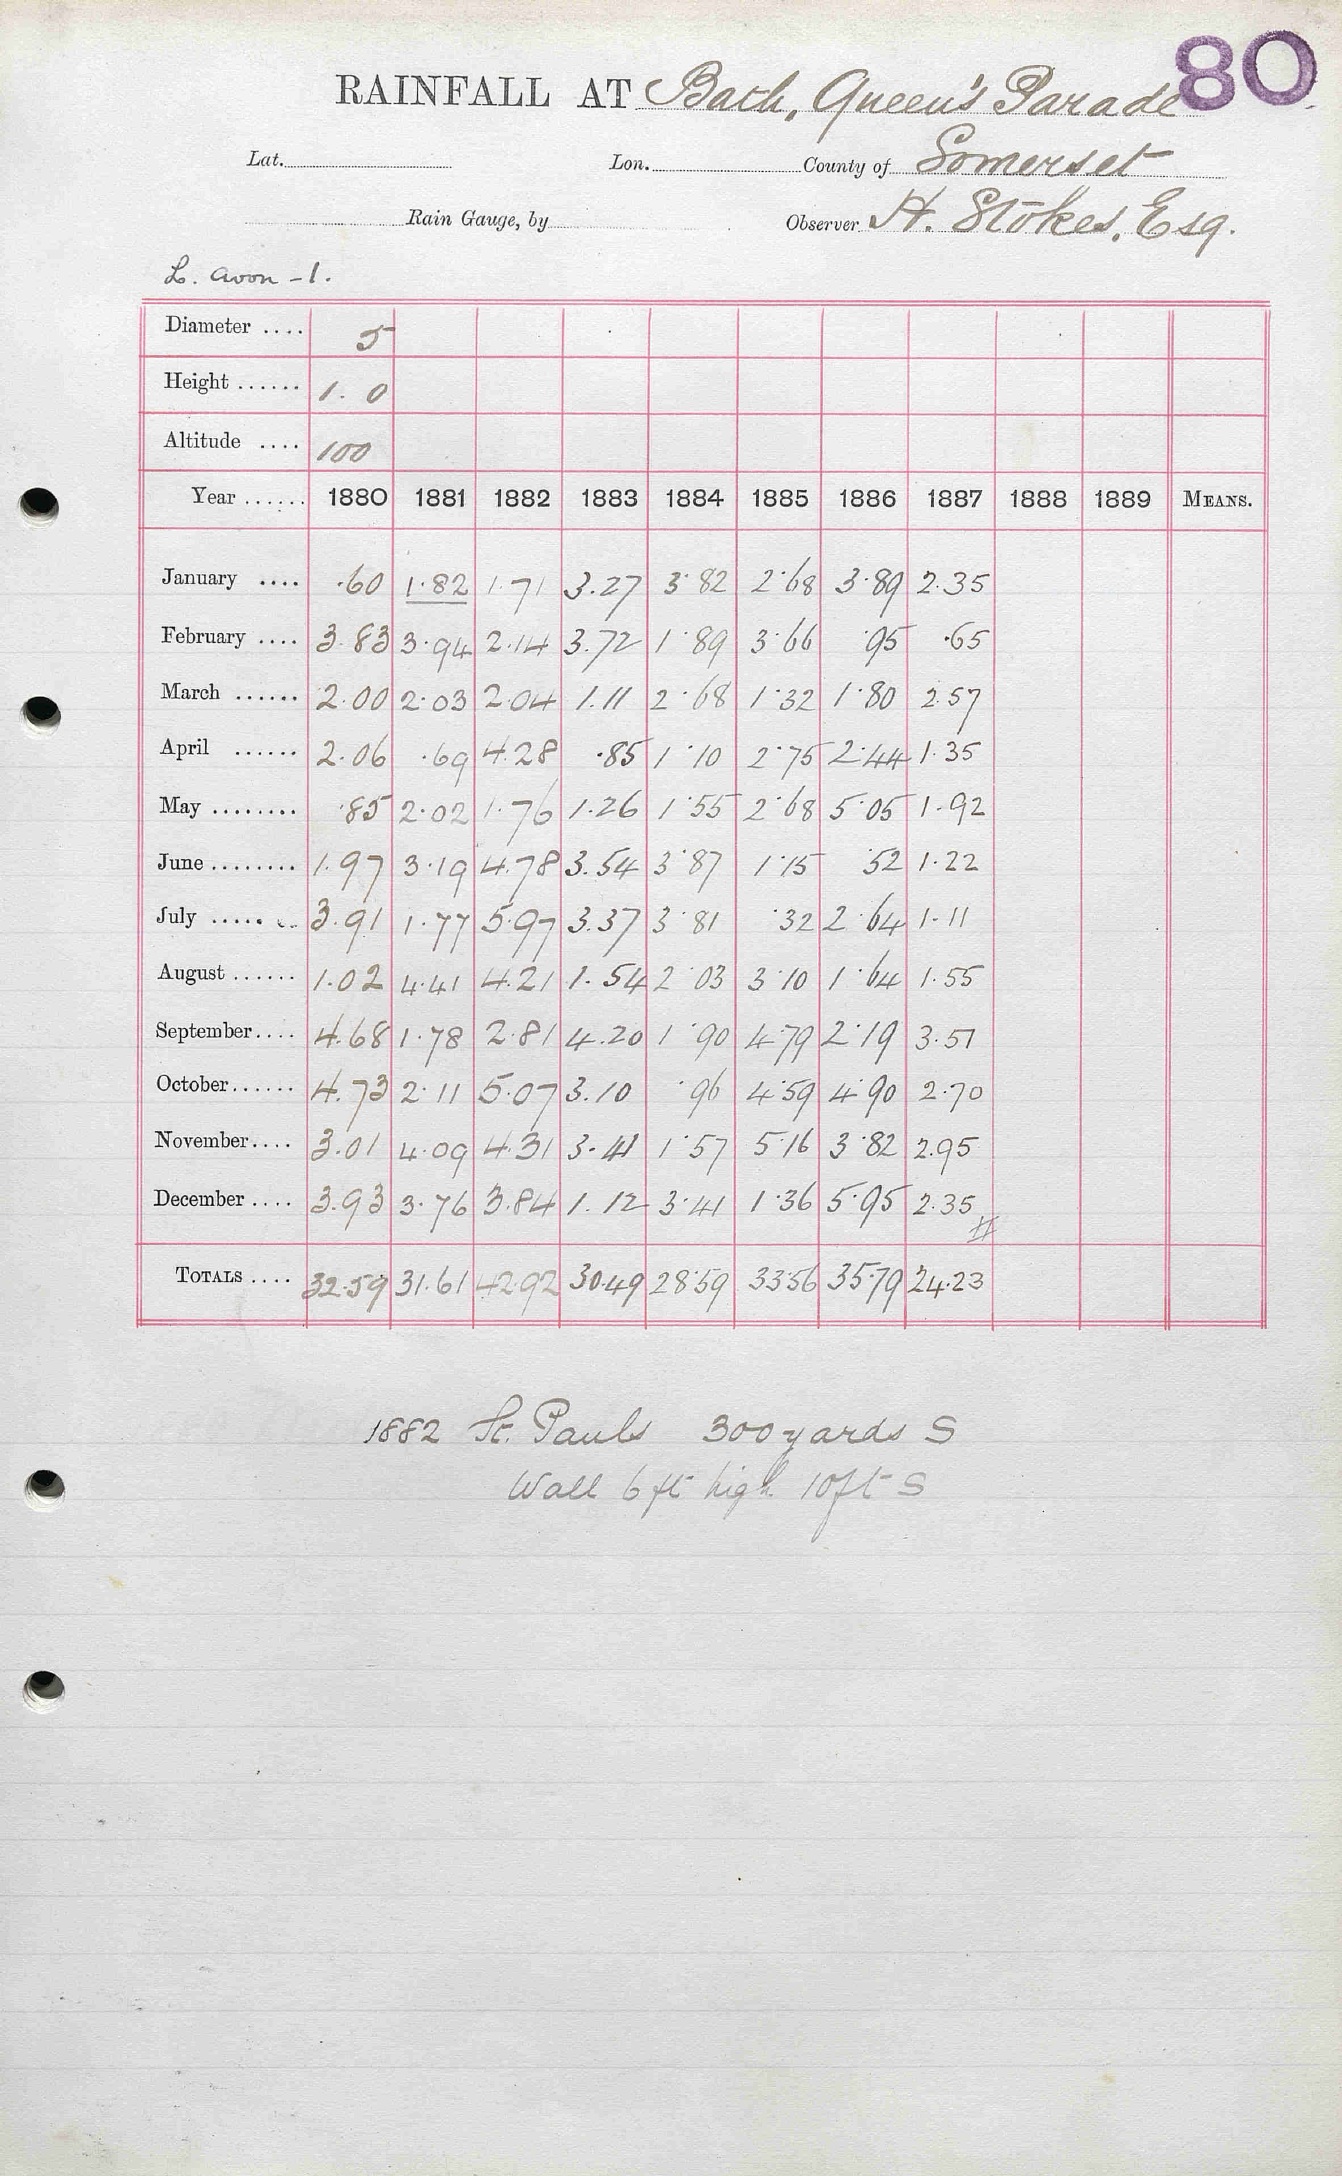 80
RAINFALL AT Bath, Queen's Parade
Lat. Lon. County of Somerset
Rain Gauge, by Observer H. Stokes, Esq.
L. Avon - 1.
Diameter .... 5
Height ...... 1. 0
Altitude .... 100
Year ...... 1880 1881 1882 1883 1884 1885 1886 1887 1888 1889 MEANS.
January .... .60 1.82 1.71 3.27 3.82 2.68 3.89 2.35
February .... 3.83 3.94 2.14 3.72 1.89 3.66 .95 .65
March ...... 2.00 2.03 2.04 1.11 2.68 1.32 1.80 2.57
April ...... 2.06 .69 4.28 .85 1.10 2.75 2.44 1.35
May ........ .85 2.02 1.76 1.26 1.55 2.68 5.05 1.92
June ........ 1.97 3.19 4.78 3.54 3.87 1.15 .52 1.22
July ........ 3.91 1.77 5.97 3.37 3.81 .32 2.64 1.11
August ...... 1.02 4.41 4.21 1.54 2.03 3.10 1.64 1.55
September .... 4.68 1.78 2.81 4.20 1.90 4.79 2.19 3.51
October ...... 4.73 2.11 5.07 3.10 .96 4.59 4.90 2.70
November .... 3.01 4.09 4.31 3.41 1.57 5.16 3.82 2.95
December .... 3.93 3.76 3.84 1.12 3.41 1.36 5.95 2.35
TOTALS .... 32.59 31.61 42.92 30.49 28.59 33.56 35.79 24.23
1882 St. Pauls 300 yards S
Wall 6 ft high 10 ft S